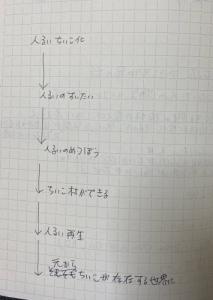 人るいちいこ化
人るいのすいたい
人るいのめつぼう
ちいこ村ができる
人るい再生
元から
ちいこが存在する世界に